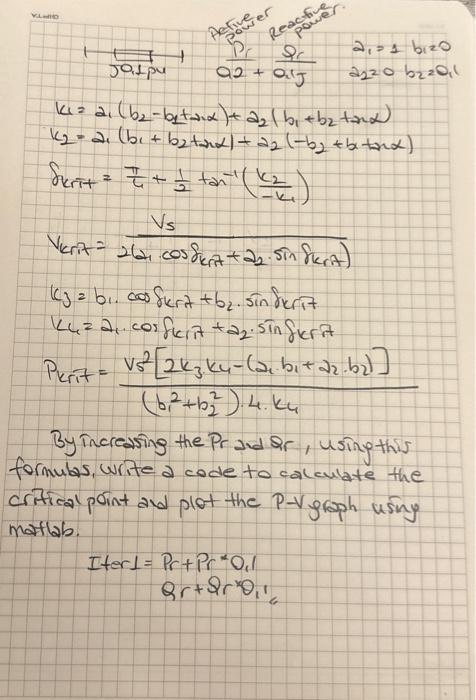 Active power Reactive power.
Pr Qr a1=1 b1=0
j0.1pu 0.2 + 0.1j a2=0 b2=0,1
k1= a1(b2-b1tanα)+a2(b1+b2tanα)
k2= a1(b1+b2tanα)+a2(-b2+b1tanα)
δkrit = π/4 + 1/2 tan⁻¹(k2/-k1)
Vkrit= Vs/2(a1 cosδkrit+a2.sinδkrit)
k3=b1.cosδkrit+b2.sinδkrit
k4=a1.cosδkrit+a2.sinδkrit
Pkrit= Vs²[2k3.k4-(a1.b1+a2.b2)]/(b1²+b2²).4.k4
By increasing the Pr and Qr, using this
formulas, write a code to calculate the
critical point and plot the P-V graph using
matlab.
Iter1= Pr+Pr*0,1
Qr+Qr*0,1